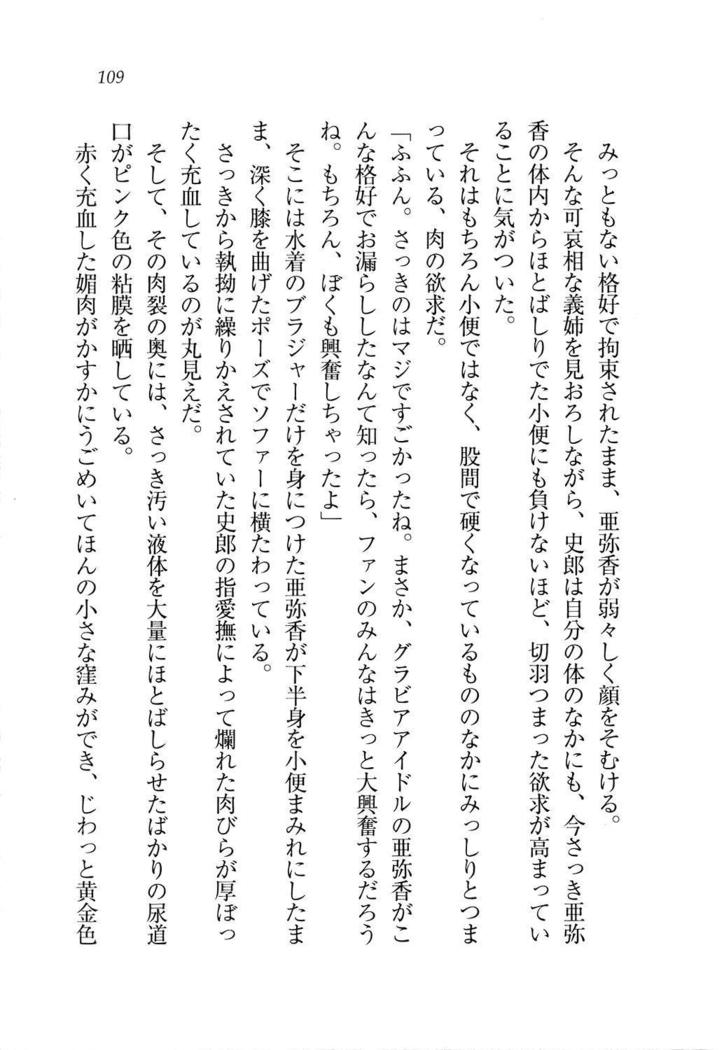 109
みっともない格好で拘束されたまま、亜弥香が弱々しく顔をそむける。
そんな可哀相な義姉を見おろしながら、史郎は自分の体のなかにも、今さっき亜弥
香の体内からほとばしりでた小便にも負けないほど、切羽つまった欲求が高まってい
ることに気がついた。
それはもちろん小便ではなく、股間で硬くなっているもののなかにみっしりとつま
っている、肉の欲求だ。
「ふふん。さっきのはマジですごかったね。まさか、グラビアアイドルの亜弥香がこ
んな格好でお漏らししたなんて知ったら、ファンのみんなはきっと大興奮するだろう
ね。もちろん、ぼくも興奮しちゃったよ」
そこには水着のブラジャーだけを身につけた亜弥香が下半身を小便まみれにしたま
ま、深く膝を曲げたポーズでソファーに横たわっている。
さっきから執拗に繰りかえされていた史郎の指愛撫によって爛れた肉びらが厚ぼっ
たく充血しているのが丸見えだ。
そして、その肉裂の奥には、さっき汚い液体を大量にほとばしらせたばかりの尿道
口がピンク色の粘膜を晒している。
赤く充血した媚肉がかすかにうごめいてほんの小さな窪みができ、じわっと黄金色